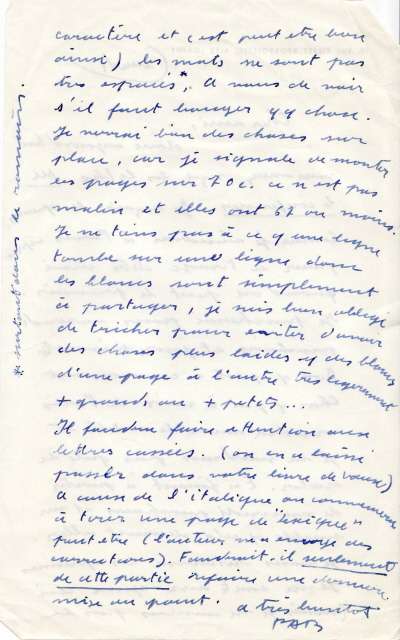 caractère et c'est peut être bien
ainsi) les mots ne sont pas
très espacés*. A vous de voir
s'il faut bouger qq chose.
Je verrai bien des choses sur
place, car je signale de monter
les pages sur 70 c. ce n'est pas
malin et elles ont 67 ou moins.
Je ne tiens pas à ce q'une ligne
tombe sur une ligne donc
les blancs sont simplement
à partager, je suis bien obligé
de tricher pour éviter d'avoir
des choses plus laides q des blancs
d'une page à l'autre très légèrement
+ grands ou + petits...
Il faudra faire attention aux
lettres cassées. (on en a laissé
passer dans votre livre de)
A cause de l'italique on commencera
à tirer une page de "lexique"
peut être (l'auteur m'a envoyé des
corrections). Faudrait-il seulement
de cette partie refaire une dernière
mise au point. a très bientôt
* surtout dans le romain.